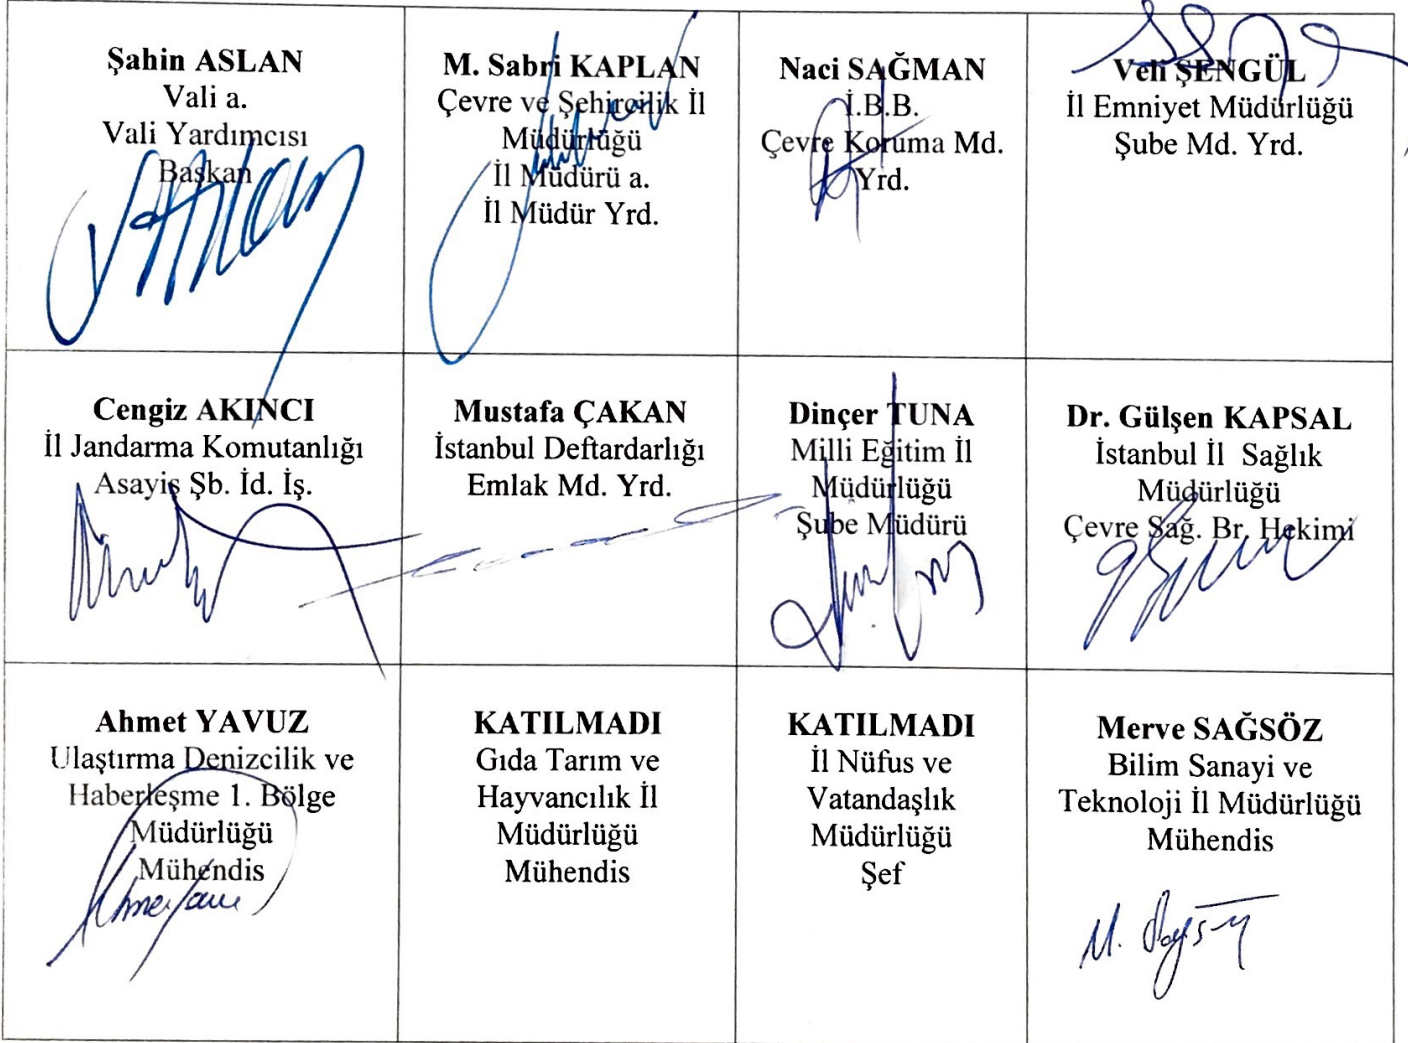 Şahin ASLAN
Vali a.
Vali Yardımcısı
Başkan
M. Sabri KAPLAN
Çevre ve Şehircilik İl
Müdürlüğü
İl Müdürü a.
İl Müdür Yrd.
Naci SAĞMAN
İ.B.B.
Çevre Koruma Md.
Yrd.
Veli ŞENGÜL
İl Emniyet Müdürlüğü
Şube Md. Yrd.
Cengiz AKINCI
İl Jandarma Komutanlığı
Asayiş Şb. İd. İş.
Mustafa ÇAKAN
İstanbul Deftardarlığı
Emlak Md. Yrd.
Dinçer TUNA
Milli Eğitim İl
Müdürlüğü
Şube Müdürü
Dr. Gülşen KAPSAL
İstanbul İl Sağlık
Müdürlüğü
Çevre Sağ. Br. Hekimi
Ahmet YAVUZ
Ulaştırma Denizcilik ve
Haberleşme 1. Bölge
Müdürlüğü
Mühendis
KATILMADI
Gıda Tarım ve
Hayvancılık İl
Müdürlüğü
Mühendis
KATILMADI
İl Nüfus ve
Vatandaşlık
Müdürlüğü
Şef
Merve SAĞSÖZ
Bilim Sanayi ve
Teknoloji İl Müdürlüğü
Mühendis